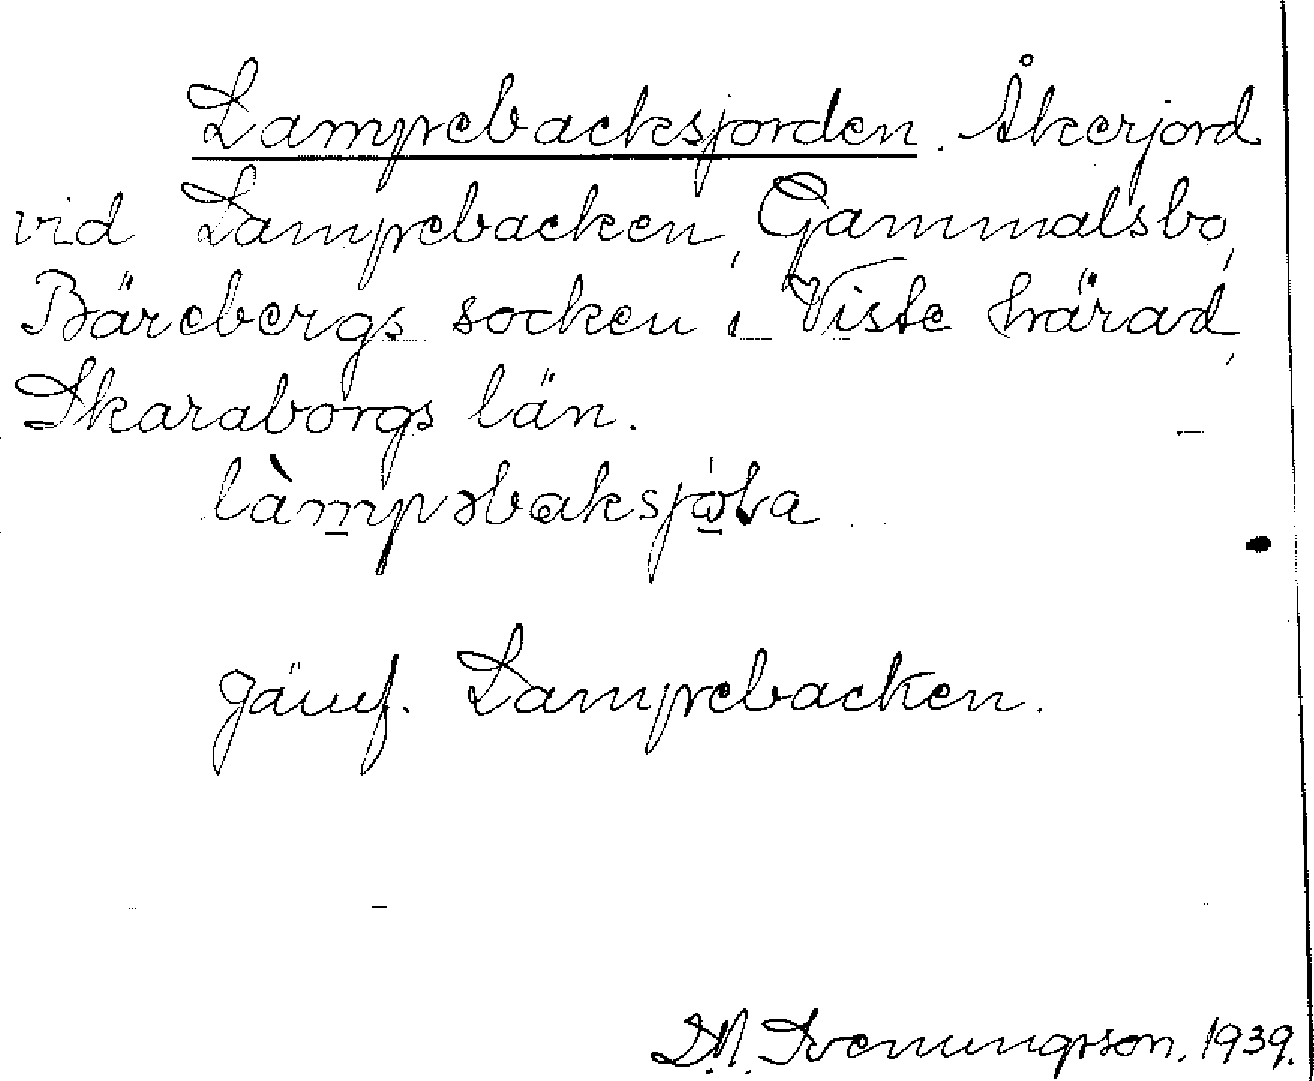 Lampebacksjorden. Åkerjord
vid Lampebacken, Gammalsbo,
Bärebergs socken i Viste härad,
Skaraborgs län.
làmpəbaksjo̱ɽa
Jämf. Lampebacken.
D.N. Svenungsson. 1939.